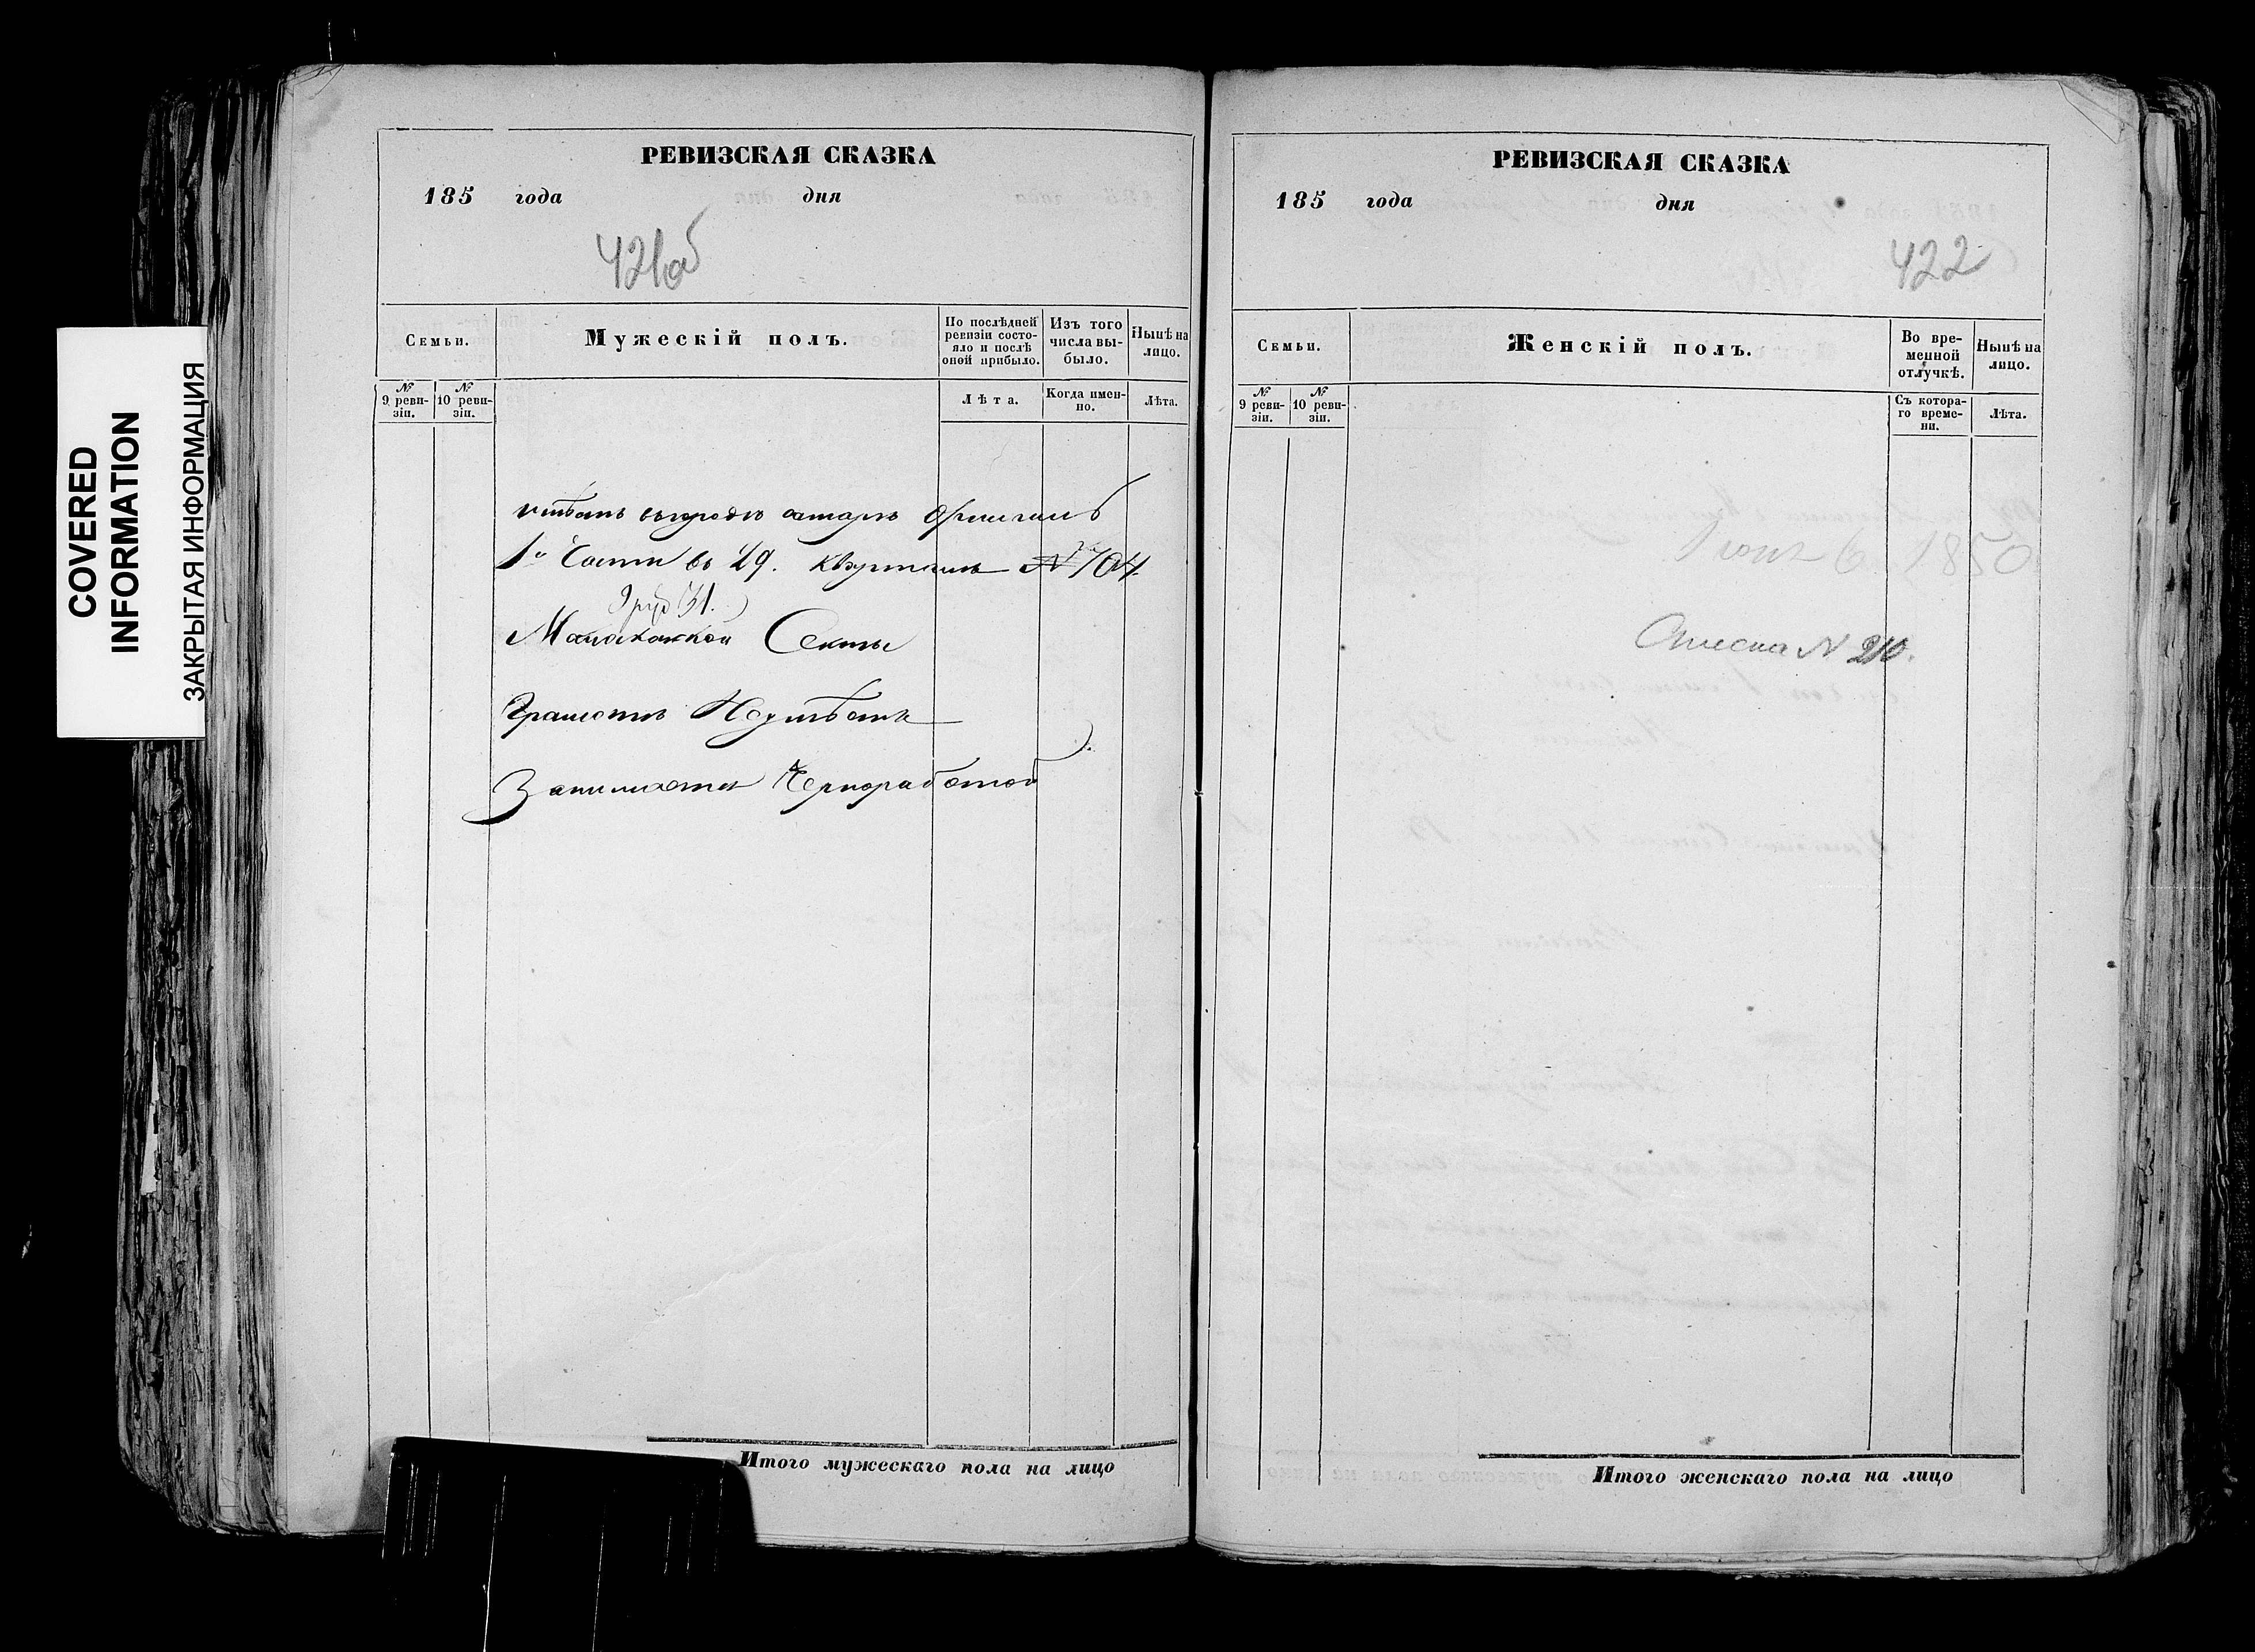 COVERED
INFORMATION
ЗАКРЫТАЯ ИНФОРМАЦИЯ
РЕВИЗСКАЯ СКАЗКА
185 года дня
421об
Семьи.
Мужескій полъ.
По послѣдней
ревизіи состо-
яло и послѣ
оной прибыло.
Изъ того
числа вы-
было.
Нынѣ на
лицо.
№
9 реви-
зіи.
№
10 реви-
зіи.
Лѣта.
Когда имен-
но.
Лѣта.
въ городѣ
1й Части въ 29. кварталѣ № 704.
31.
Малаканской Секты
Грамотѣ Неумѣетъ
Занимается Чернработой
Итого мужескаго пола на лицо
РЕВИЗСКАЯ СКАЗКА
185 года дня
422
Семьи.
Женскій полъ.
Во вре-
менной
отлучкѣ.
Нынѣ на
лицо.
№
9 реви-
зіи.
№
10 реви-
зіи.
Съ котора-
го време-
ни.
Лѣта.
6 1850
N 210.
Итого женскаго пола на лицо